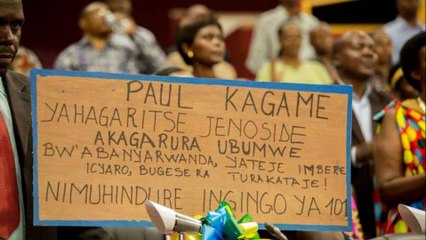 PAUL KAGAME
YAHAGARITSE JENOSIDE
AKAGARURA UBUMWE
BW'ABANYARWANDA, YATEJE IMBERE
ICYARO, BUGESERA TURAKATAJE!
NIMUHINDURE INGINGO YA 101